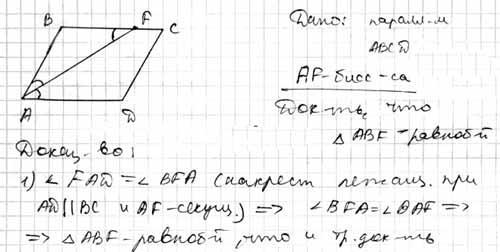 B F C
A D
Дано: паралл-м
ABCD
AF-бисс-са
Док-ть, что
△ ABF-равноб-й
Доказ-во:
1) ∠ FAD = ∠ BFA (накрест лежащ. при
AD || BC и AF-секущ.) => ∠ BFA = ∠ BAF =>
=> △ ABF-равноб-й, что и тр. док-ть